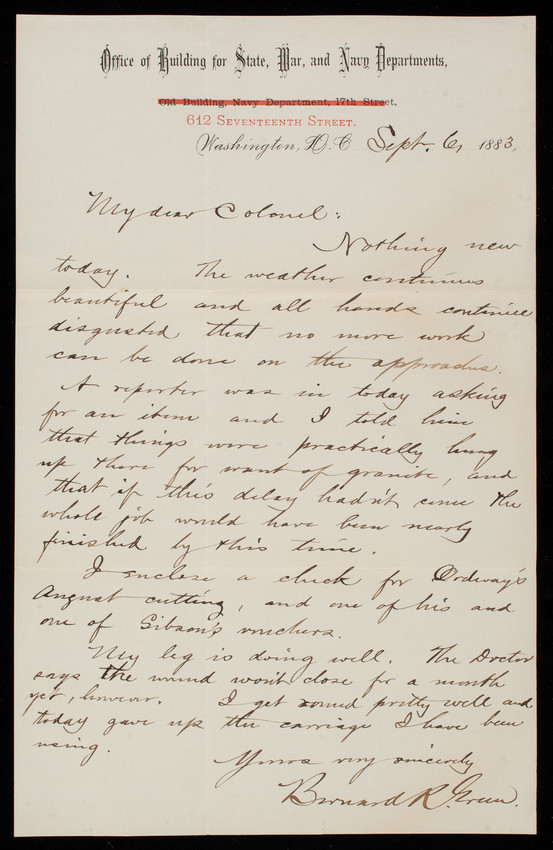 Office of Building for State, War, and Navy Departments,
Old Building, Navy Department, 17th Street,
612 SEVENTEENTH STREET.
Washington, D. C. Sept. 6, 1883,
My dear Colonel:
Nothing new
today. The weather continues
beautiful and all hands continue
disgusted that no more work
can be done on the approaches.
A reporter was in today asking
for an item and I told him
that things were practically hung
up there for want of granite, and
that if this delay hadn't come the
whole job would have been nearly
finished by this time.
I enclose a check for Ordway's
August cutting, and one of his and
one of Gibson's vouchers.
My leg is doing well. The Doctor
says the wound won't close for a month
yet, however. I get round pretty well and
today gave up the carriage I have been
using.
Yours very sincerely
Bernard R. Green.